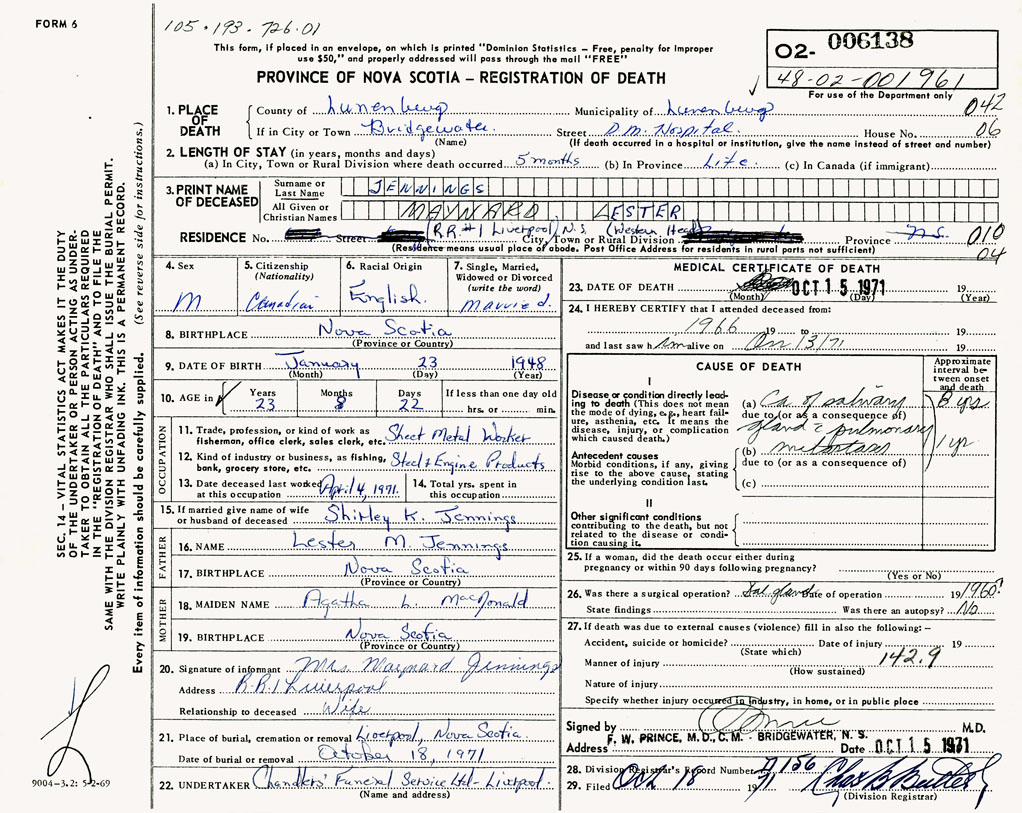 FORM 6
105·193·726·01
This form, if placed in an envelope, on which is printed "Dominion Statistics – Free, penalty for improper
use $50," and properly addressed will pass through the mail "FREE"
PROVINCE OF NOVA SCOTIA – REGISTRATION OF DEATH
02- 006138
48-02-001961
For use of the Department only
042
1. PLACE OF DEATH
County of Lunenburg Municipality of Lunenburg
If in City or Town Bridgewater Street D.M. Hospital House No. 06
(Name) (If death occurred in a hospital or institution, give the name instead of street and number)
2. LENGTH OF STAY (in years, months and days)
(a) In City, Town or Rural Division where death occurred 5 months (b) In Province Life (c) In Canada (if immigrant)
3. PRINT NAME OF DECEASED
Surname or Last Name JENNINGS
All Given or Christian Names MAYNARD LESTER
RESIDENCE No. Street (R.R. #1 Liverpool) N.S. (Western Head) City, Town or Rural Division Province N.S. 010
(Residence means usual place of abode. Post Office Address for residents in rural parts not sufficient) 04
4. Sex
M
5. Citizenship
(Nationality)
Canadian
6. Racial Origin
English
7. Single, Married,
Widowed or Divorced
(write the word)
Married.
8. BIRTHPLACE Nova Scotia
(Province or Country)
9. DATE OF BIRTH January 23 1948
(Month) (Day) (Year)
10. AGE in Years Months Days If less than one day old
23 8 22 hrs. or min.
OCCUPATION
11. Trade, profession, or kind of work as
fisherman, office clerk, sales clerk, etc. Sheet Metal Worker
12. Kind of industry or business, as fishing,
bank, grocery store, etc. Steel & Engine Products
13. Date deceased last worked
at this occupation April 4, 1971.
14. Total yrs. spent in
this occupation
15. If married give name of wife
or husband of deceased Shirley K. Jennings
FATHER
16. NAME Lester M. Jennings
17. BIRTHPLACE Nova Scotia
(Province or Country)
MOTHER
18. MAIDEN NAME Agatha L. MacDonald
19. BIRTHPLACE Nova Scotia
(Province or Country)
20. Signature of informant Mrs. Maynard Jennings
Address R.R.1 Liverpool
Relationship to deceased Wife
21. Place of burial, cremation or removal Liverpool, Nova Scotia.
Date of burial or removal October 18, 1971
22. UNDERTAKER Chandlers' Funeral Service Ltd- Liverpool.
(Name and address)
MEDICAL CERTIFICATE OF DEATH
23. DATE OF DEATH OCT 15 1971 19
(Month) (Day) (Year)
24. I HEREBY CERTIFY that I attended deceased from:
1966 19 to 19
and last saw him alive on Oct 13/71 19
CAUSE OF DEATH
Approximate
interval be-
tween onset
and death
I
Disease or condition directly lead-
ing to death (This does not mean
the mode of dying, e.g., heart fail-
ure, asthenia, etc. It means the
disease, injury, or complication
which caused death.)
(a) Ca. of salivary 13 yrs
due to (or as a consequence of)
gland c pulmonary
Antecedent causes
Morbid conditions, if any, giving
rise to the above cause, stating
the underlying condition last.
(b) metastases 1 yr.
due to (or as a consequence of)
(c)
II
Other significant conditions
contributing to the death, but not
related to the disease or condi-
tion causing it.
25. If a woman, did the death occur either during
pregnancy or within 90 days following pregnancy?
(Yes or No)
26. Was there a surgical operation? Sal. gland Date of operation 19 1960?
State findings Was there an autopsy? No
27. If death was due to external causes (violence) fill in also the following: –
Accident, suicide or homicide? Date of injury 19
(State which)
Manner of injury 142.9
(How sustained)
Nature of injury
Specify whether injury occurred in industry, in home, or in public place
Signed by M.D.
Address F. W. PRINCE, M.D., C.M. - BRIDGEWATER, N. S.
Date OCT 15 1971
28. Division Registrar's Record Number 156
29. Filed Oct 18 1971
(Division Registrar)
SEC. 14 – VITAL STATISTICS ACT MAKES IT THE DUTY
OF THE UNDERTAKER OR PERSON ACTING AS UNDER-
TAKER TO OBTAIN ALL THE PARTICULARS REQUIRED
IN THE "REGISTRATION OF DEATH" AND TO FILE THE
SAME WITH THE DIVISION REGISTRAR WHO SHALL ISSUE THE BURIAL PERMIT.
WRITE PLAINLY WITH UNFADING INK. THIS IS A PERMANENT RECORD.
Every item of information should be carefully supplied. (See reverse side for instructions.)
9004-3.2: 5-2-69